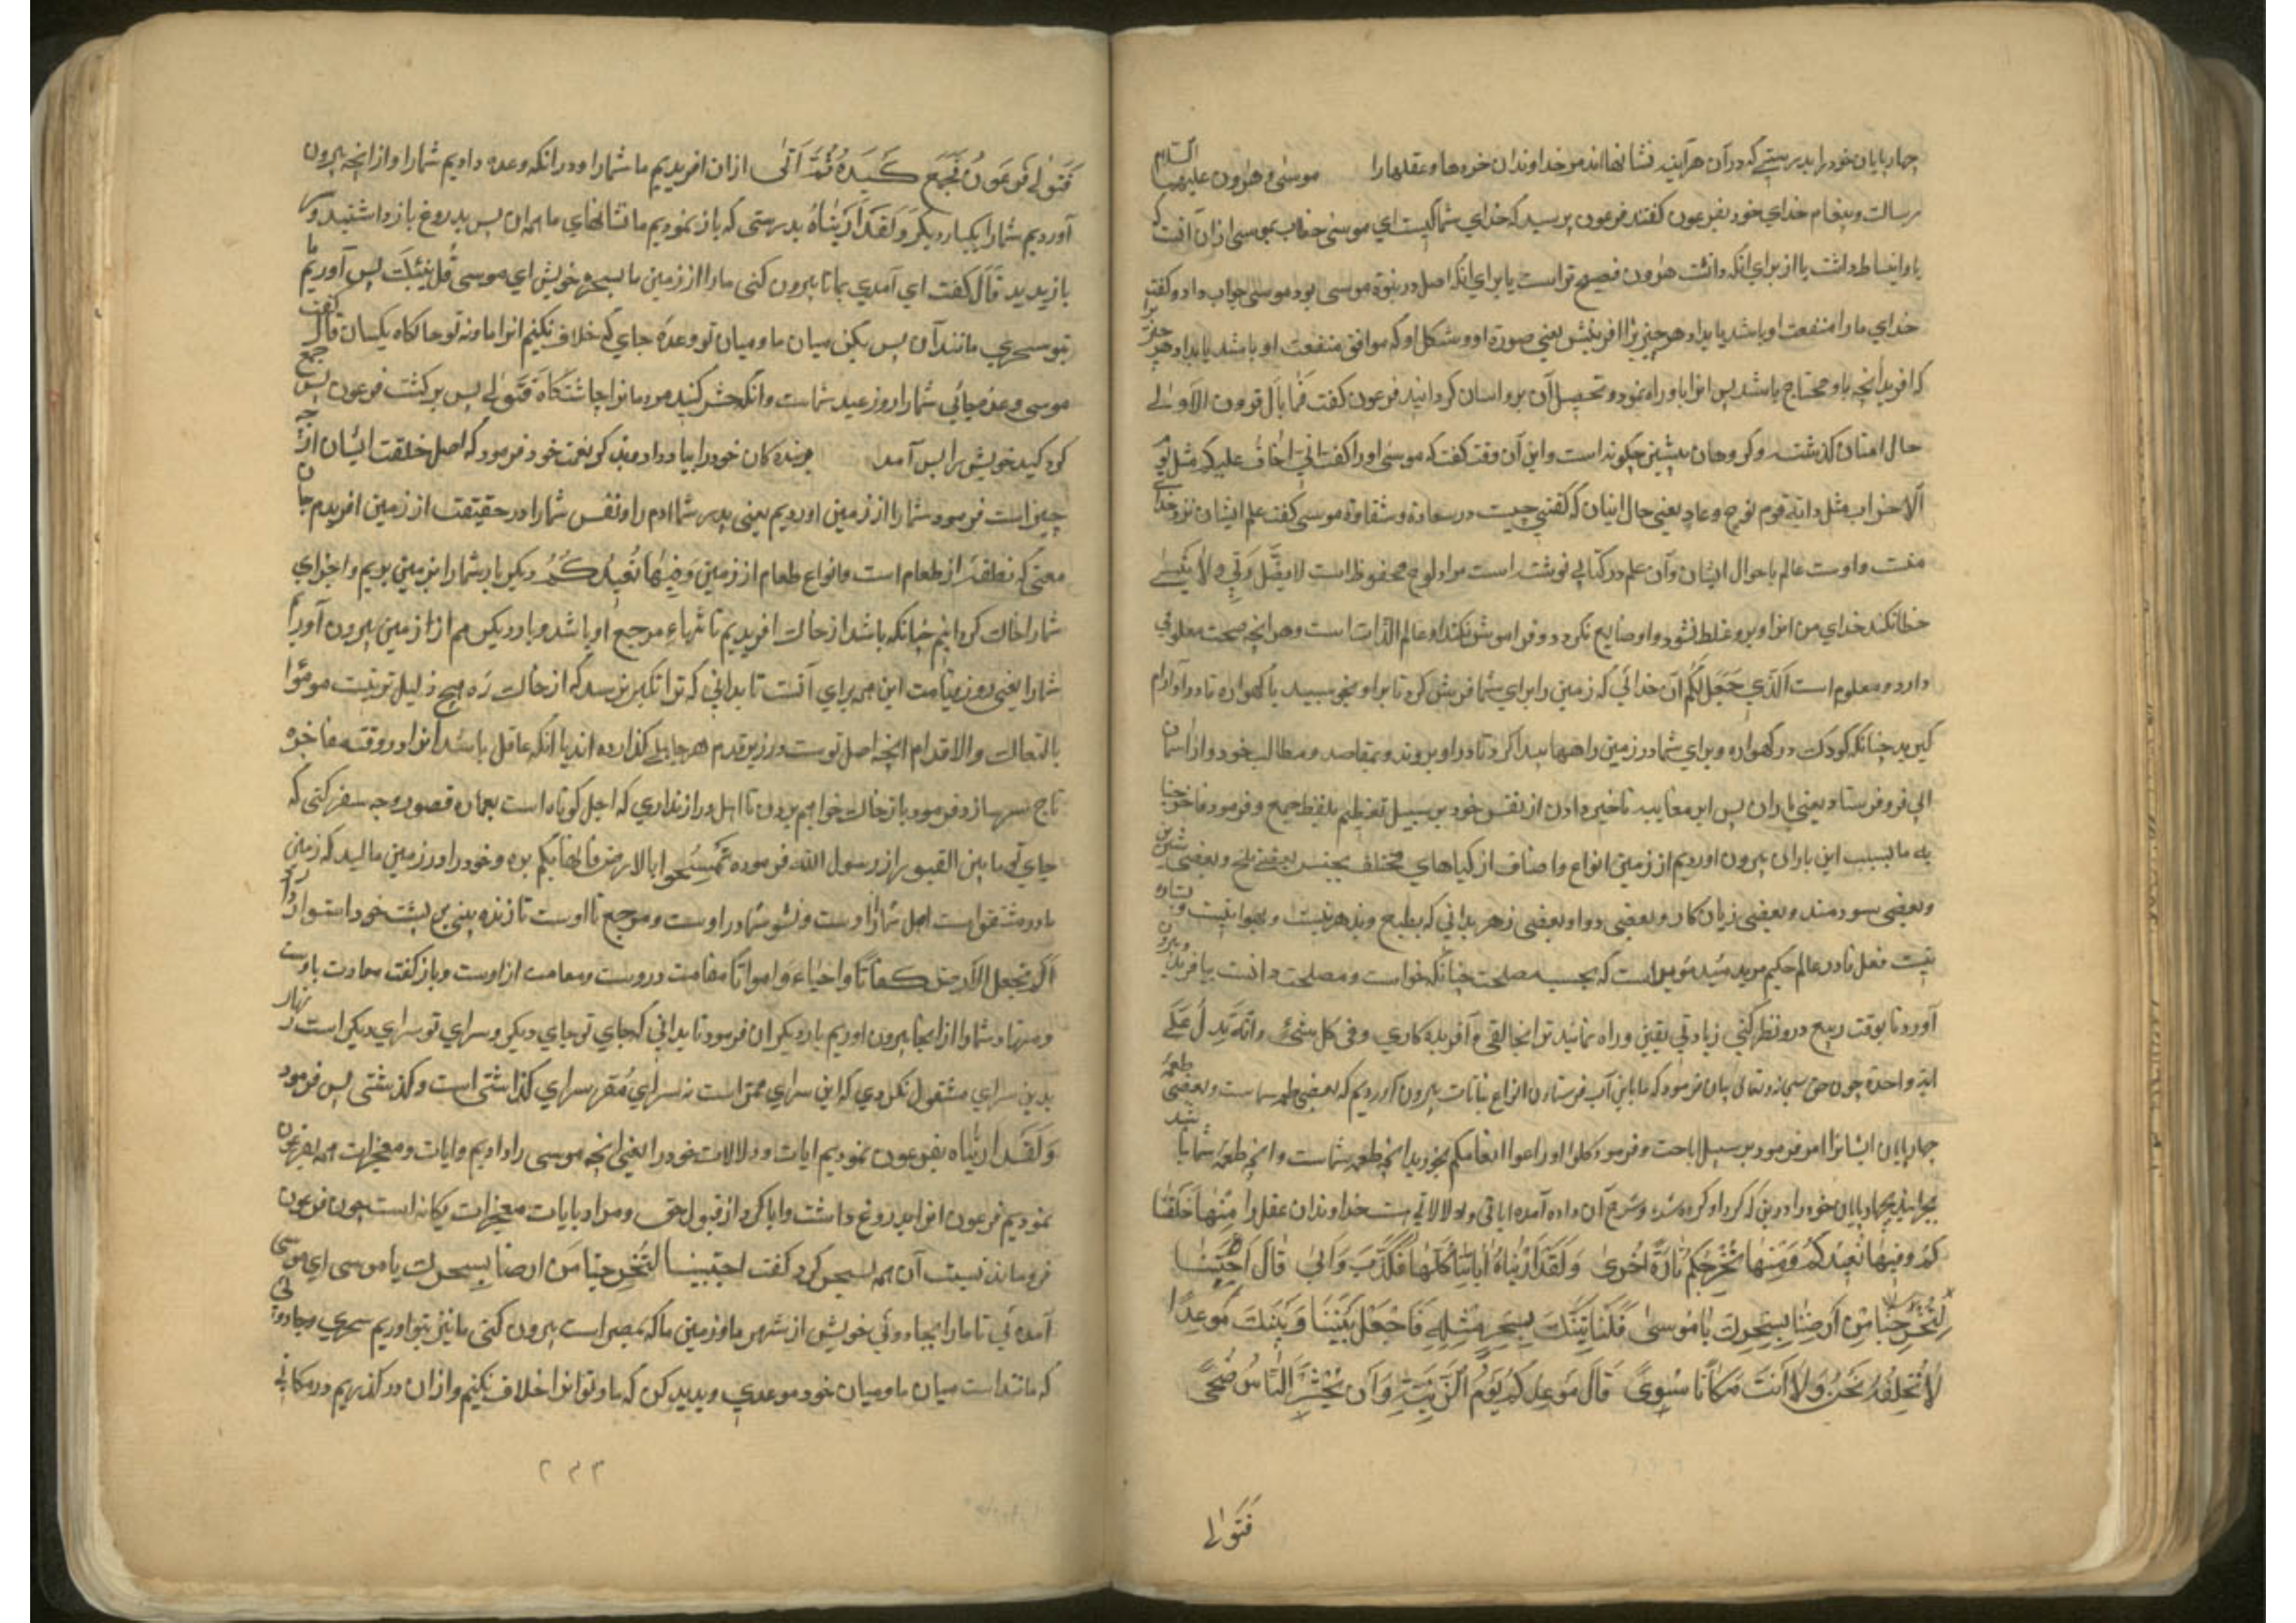 چهارپایان خود را بدرستی که در آن هرآینه نشانها اند مر خداوندان خردها و عقلها را موسی و هرون علیهما السلام
برسالت و پیغام خدای خود بفرعون گفتند فرعون پرسید که خدای شما کیست ای موسی خطاب بموسی از آن
یا از برای انکه دانست هرون فصیح تر است یا برای انکه اصل در نبوة موسی بود موسی جواب داد و گفت
خدای ما را منفعت او باشد یا بداد هر چیزیرا افرینش یعنی صورة او و شکل او که موافق منفعت او باشد یا بداد هر
که افرید انچه باو محتاج باشد پس انرا باو راه نمود و تحصیل آن برو اسان کردانید فرعون گفت فما بال قرون الاولی
حال امتان کذشته و کروهان پیشین چکونه است و این آن وقت گفت که موسی او را گفت انی اخاف علیکم مثل یوم
الاحزاب مثل داب قوم نوح و عاد یعنی حال اینان که گفتی چیست در سعادة و شقاوة موسی گفت علم ایشان نزد خدای
منست و اوست عالم باحوال ایشان و آن علم در کتابی نوشته است مراد لوح محفوظ است لا یضل ربی و لا ینسی
خطا نکند خدای من انرا و برو غلط نشود و او ضایع نکردد و فراموش نکند او عالم الذات است و هر انچه صحت معلومی
دارد و معلوم است الذی جعل لکم آن خدائی که زمین را برای شما فرش کرد تا برو بخسبید یا کهواره تا درو آرام
کیرید چنانکه کودک در کهواره و برای شما در زمین راهها پیدا کرد تا درو بروید و بمقاصد و مطالب خود و از اسمان
ابی فرو فرستاد یعنی باران پس ابر معایبه تاخیر دادن از نفس خود بر سبیل تعظیم بلفظ جمع و فرمود فاخرجنا
به ما بسبب این باران بیرون اوردیم از زمین انواع و اصناف از کیاهای مختلف بجنس بعضی تلخ و بعضی شیرین
و بعضی سودمند و بعضی زیان کار و بعضی دوا و بعضی زهر بدانی که بطبع و بدهر نیست و بهوا نیست و
نیست فعل قادر عالم حکیم مرید است که بحسب مصلحت چنانکه خواست و مصلحت دانست بیافرید و بیرون
آورد تا بوقت ربیع درو نظر کنی زیادتی یقین و راه نمائید ترا بخالقی آفریده کاری و فی کل شئ و انه یدل علی
انه واحد چون حق سبحانه و تعالی بیان فرمود که ما باین آب فرستادن انواع نباتات بیرون آوردیم که بعضی طعمه شماست و بعضی طعمه
چهارپایان ایشانرا امر فرمود بر سبیل اباحت و فرمود کلوا و ارعوا انعامکم بخورید انچه طعمه شماست و انچه طعمه شما نباشد
بچرانید چهارپایان خود را درین که کرد او کرده شد و شرح آن داده آمد ایاتی و دلالاتی هست خداوندان عقل را منها خلقنا
کم و فیها نعیدکم و منها نخرجکم تارة اخری و لقد اریناه ایاتنا کلها فکذب و ابی قال اجئتنا
لتخرجنا من ارضنا بسحرک یا موسی فلناتینک بسحر مثله فاجعل بیننا و بینک موعدا
لا نخلفه نحن و لا انت مکانا سوی قال موعدکم یوم الزینة و ان یحشر الناس ضحی
فتولی
فتولی فرعون فجمع کیده ثم اتی ازان افریدیم ما شما را و درانکه وعده دادیم شما را و از انجه بیرون
آوردیم شما را یکبار دیکر و لقد اریناه بدرستی که باز نمودیم ما نشانهای ما همه ان پس بدروغ بازداشتید و
قال گفت ای آمدی بما تا بیرون کنی ما را از زمین ما بسحر خویش ای موسی فلناتینک پس آوریم ما
بتو سحری مانند آن پس بکن میان ما و میان تو وعده جای که خلاف نکنیم انرا ما و نه تو جایکاه یکسان قال گفت
موسی وعده جائی شما را روز عید شماست و انکه حشر کنند مردمانرا چاشتکاه فتولی پس برکشت فرعون پس جمع
کرد کید خویش را پس آمد بنده کان خود را بیاد داد منت کر نعمت خود فرمود که اصل خلقت ایشان از چه
چیز است فرمود شما را از زمین اوردیم یعنی پدر شما ادم را و نفس شما را در حقیقت از زمین افریدم جان
معنی که نطفه از طعام است و انواع طعام از زمین و فیها نعیدکم دیکر بار شما را بزمین بریم و اجزای
شما را خاک کردانیم چنانکه باشد از خاک افریدیم تا شما را مرجع او باشد و بار دیکر هم از زمین بیرون آورم
شما را یعنی روز قیامت این همه برای آنست تا بدانی که ترا تکبر نرسد که از خاک ره هیچ ذلیل تر نیست موطوا
بالنعال و الاقدام انچه اصل توست در زیر قدم هر جاهلی کذارده اند یا انکه عاقل باشد انرا در وقت مفاخره
تاج سر سازد و فرمود باز خاک خواهم بردن تا امل دراز نداری که اجل کوتاه است بعمارة قصور چه سفر کنی که
جای تو ما بین القبور از رسول الله فرموده تمسحوا بالارض فانها بکم بره و خود را در زمین مالید که زمین
مادر مشفق است اصل شما ازوست و نشو شما در اوست و مرجع تا اوست تا زنده بینی بر پشت خود استوار دارد
الم نجعل الارض کفاتا و احیاء و امواتا مقامت دروست و معاشت ازاوست و باز گفت معادت باوست
و منها و شما را ازانجا بیرون اوریم بار دیکر ان فرمود تا بدانی که جای تو جای دیکر و سرای تو سرای دیکر است زنهار
بدین سرای مشغول نکردی که این سرای ممر است نه سرای مقر سرای کذاشتی است و کذشتی پس فرمود
و لقد اریناه بفرعون نمودیم ایات و دلالات خود را یعنی انچه موسی را دادیم و ایات و معجزات همه بفرعون
نمودیم فرعون انرا بدروغ داشت و ابا کرد از قبول حق و مراد بایات معجزات یکانه است چون فرعون
فرو ماند نسبت آن همه بسحر کرد گفت اجئتنا لتخرجنا من ارضنا بسحرک یا موسی ای موسی
آمده ئی تا ما را بجادوئی خویش از شهر ما و زمین ما که بمصر است بیرون کنی ما نیز بتو اوریم سحری و جادوئی
که مانند است میان ما و میان خود موعدی پدید کن که ما و تو انرا خلاف نکنیم و ازان در کذریم در مکانی
۲۳۳